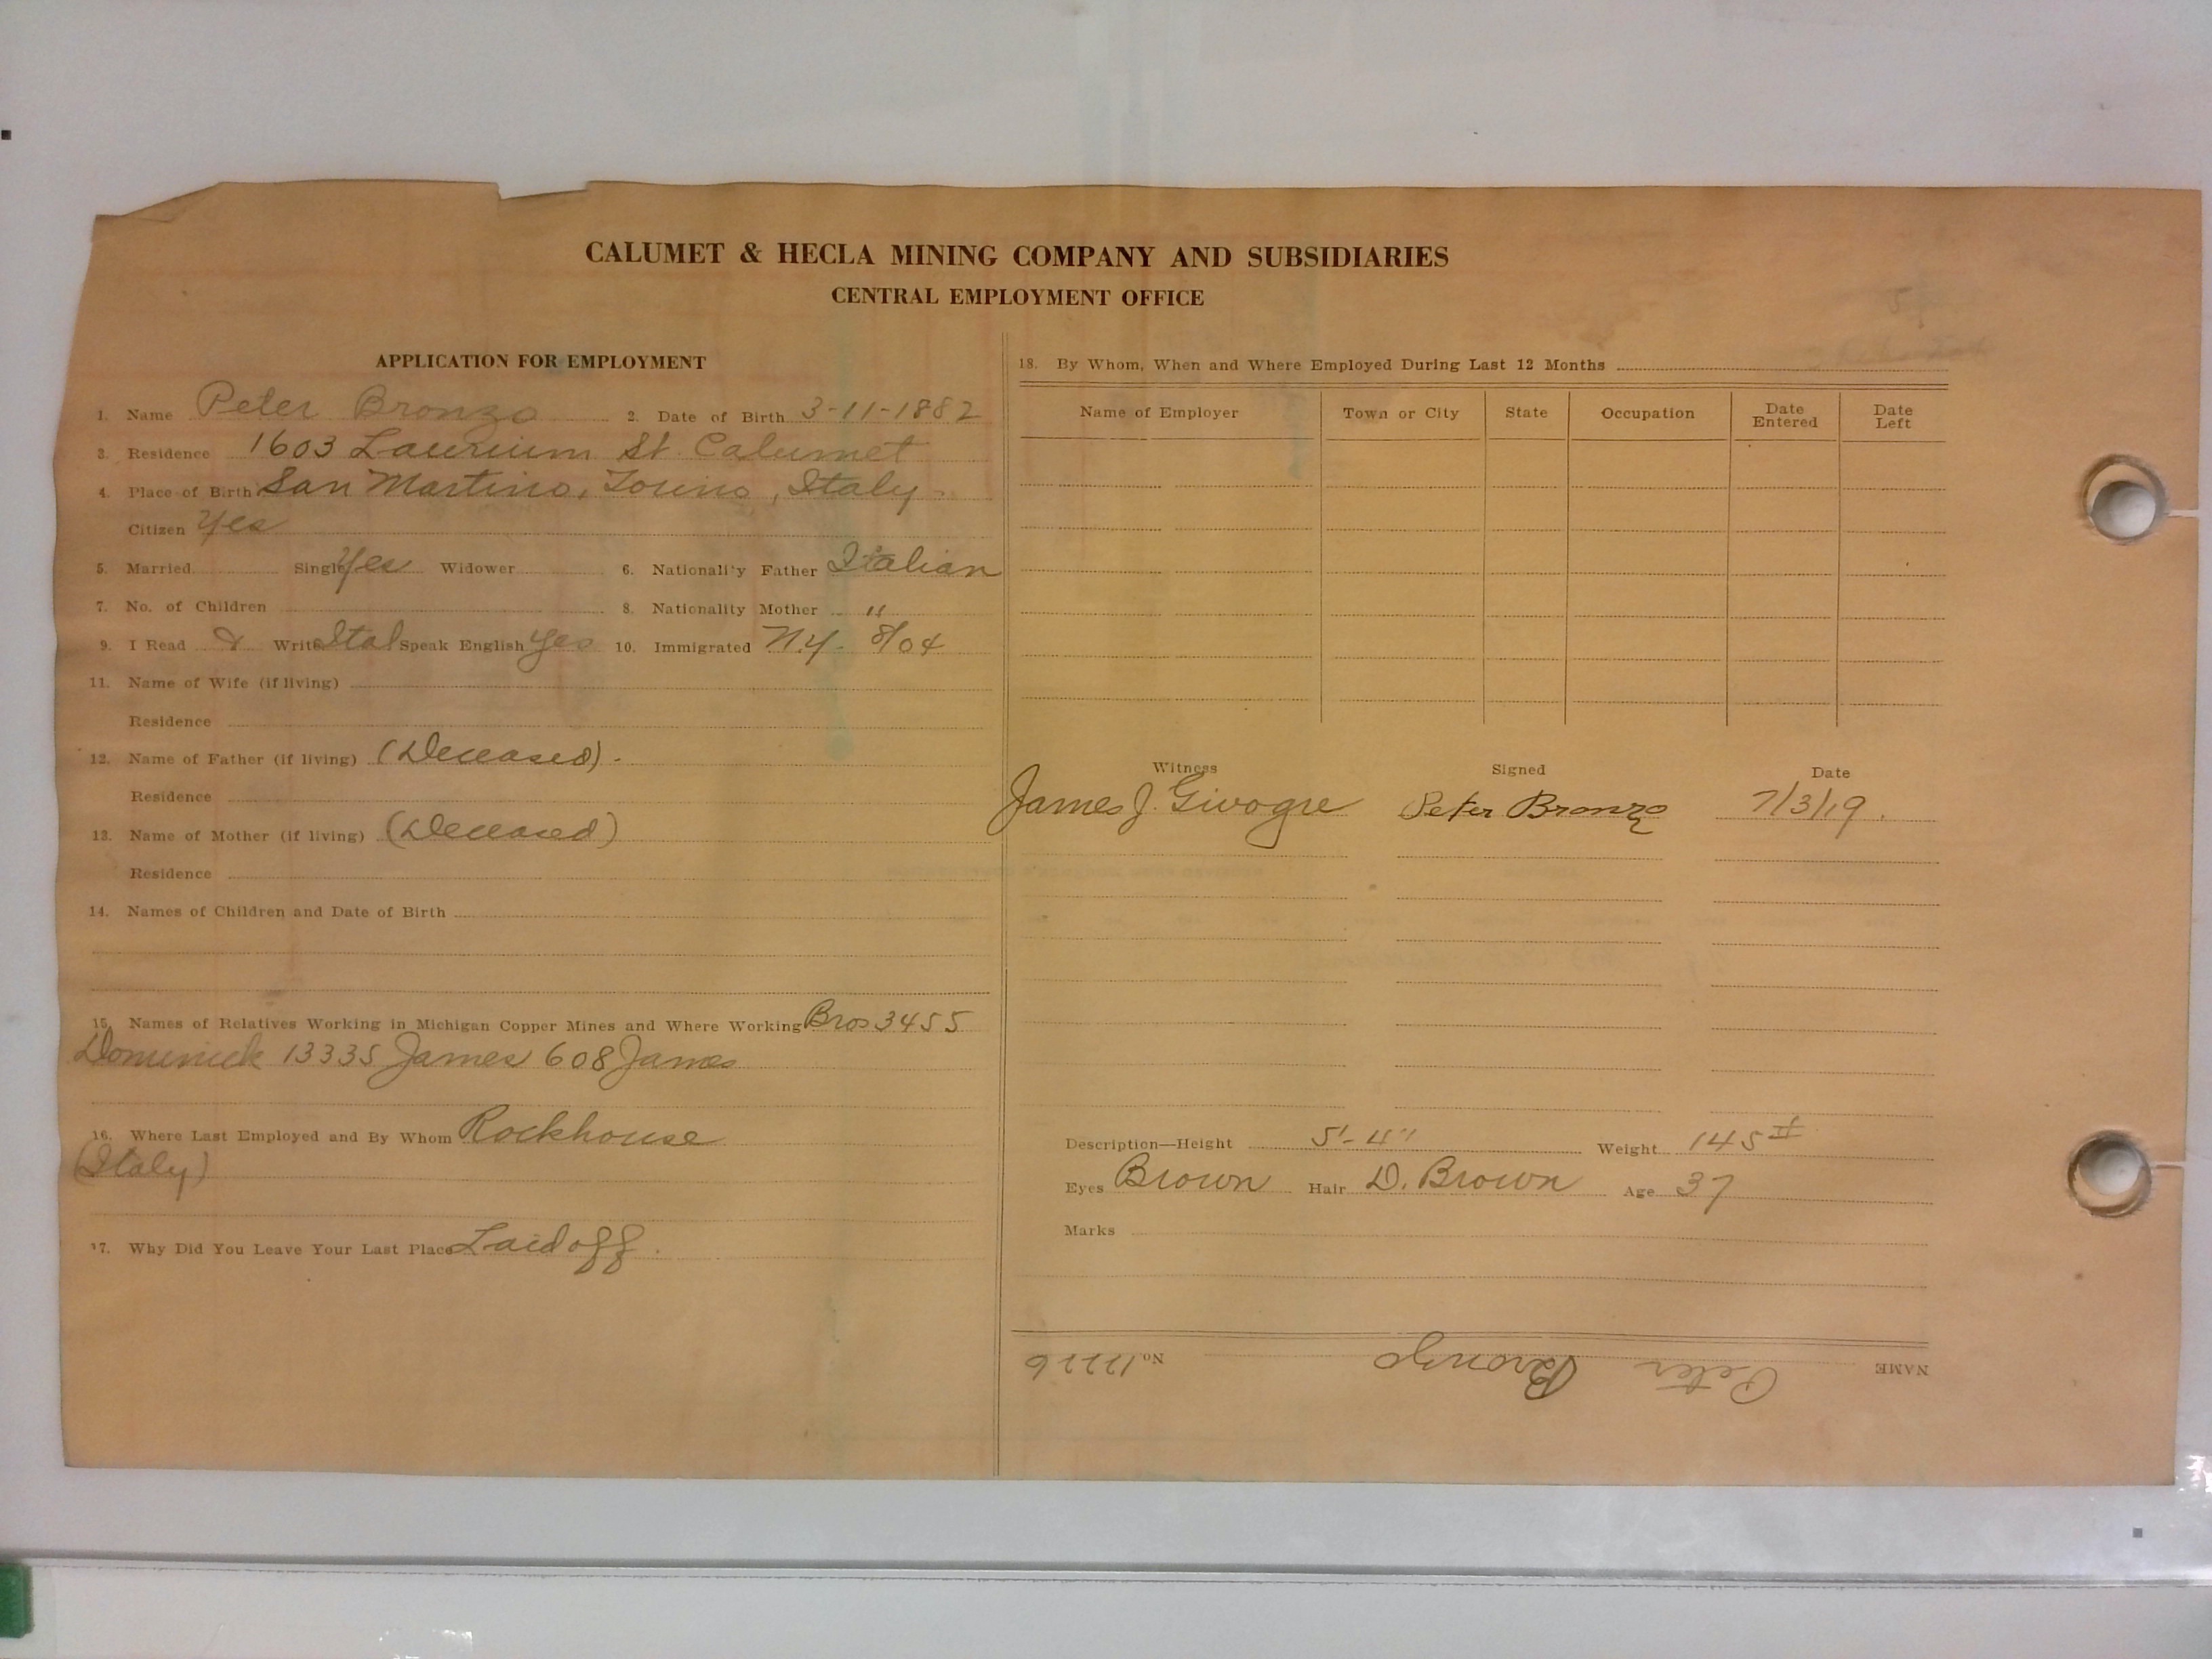 CALUMET & HECLA MINING COMPANY AND SUBSIDIARIES
CENTRAL EMPLOYMENT OFFICE
APPLICATION FOR EMPLOYMENT
1. Name Peter Bronzo 2. Date of Birth 3-11-1882
3. Residence 1603 Laurium St. Calumet
4. Place of Birth San Martino, Torino, Italy.
Citizen Yes
5. Married Single Yes Widower 6. Nationality Father Italian
7. No. of Children 8. Nationality Mother "
9. I Read & Write Ital Speak English Yes 10. Immigrated N.Y. 8/04
11. Name of Wife (if living)
Residence
12. Name of Father (if living) (Deceased).
Residence
13. Name of Mother (if living) (Deceased)
Residence
14. Names of Children and Date of Birth
15. Names of Relatives Working in Michigan Copper Mines and Where Working Bros 3455
Dominick 13335 James 608 James
16. Where Last Employed and By Whom Rockhouse
(Italy)
17. Why Did You Leave Your Last Place Laid off.
18. By Whom, When and Where Employed During Last 12 Months
Name of Employer Town or City State Occupation Date Entered Date Left
Witness Signed Date
James J. Givogre Peter Bronzo 7/3/19.
Description—Height 5'-4" Weight 145 #
Eyes Brown Hair D. Brown Age 37
Marks
NAME Peter Bronzo No.